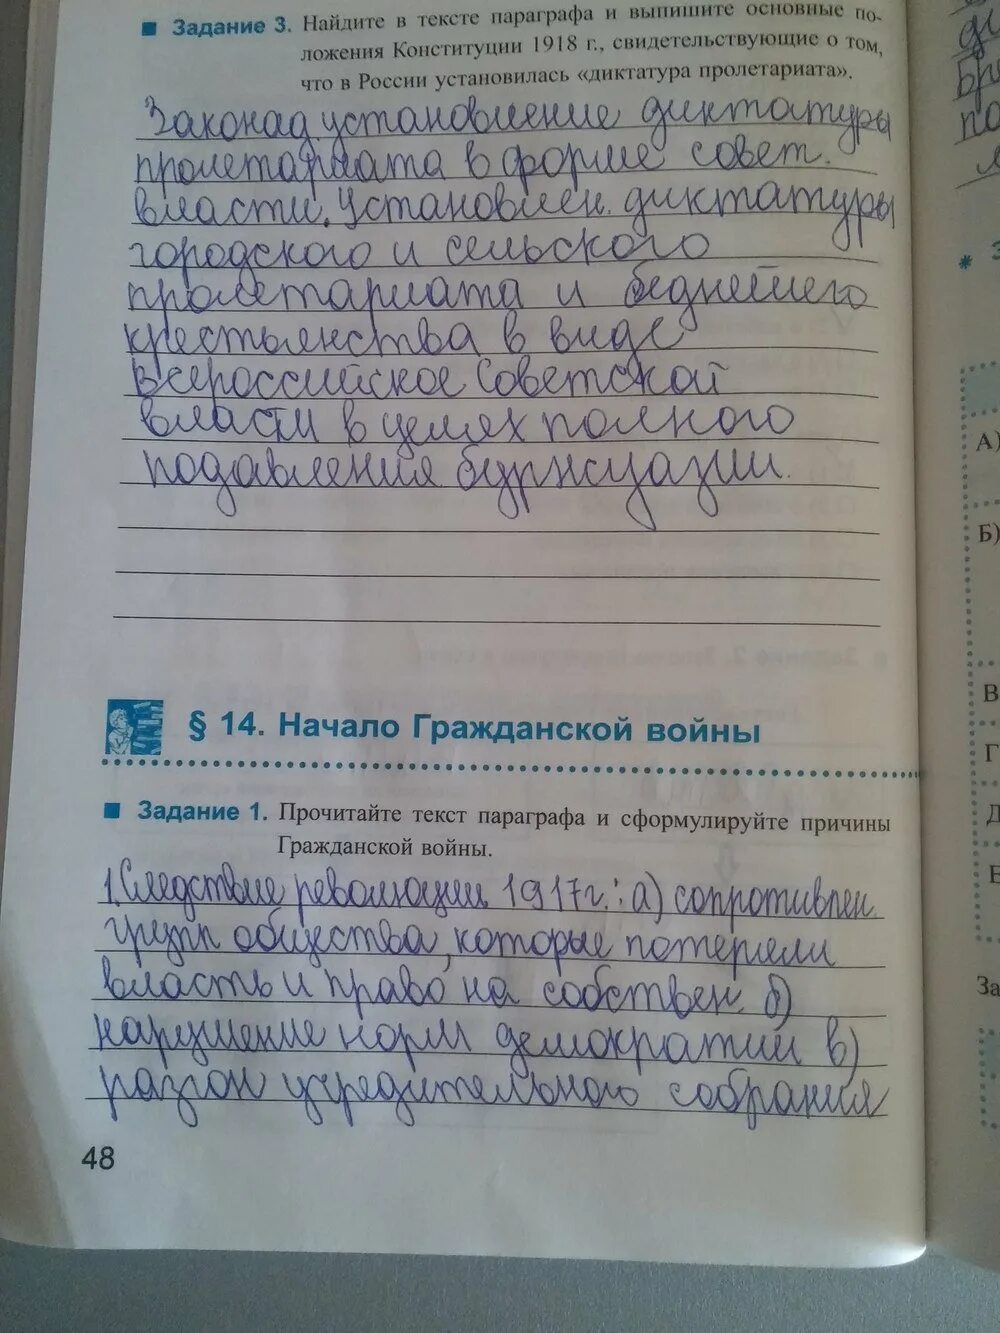 Задание 3. Найдите в тексте параграфа и выпишите основные по-
ложения Конституции 1918 г., свидетельствующие о том,
что в России установилась «диктатура пролетариата».
Законад установление диктатуры
пролетариата в форме совет.
власти. Установлен. диктатуры
городского и сельского
пролетариата и беднейшего
крестьянства в виде
Всероссийское Советской
власти в целях полного
подавления буржуазии.
§ 14. Начало Гражданской войны
Задание 1. Прочитайте текст параграфа и сформулируйте причины
Гражданской войны.
1. Следствие революции 1917г.: а) сопротивлен.
групп общества, которые потеряли
власть и право на собствен. б)
нарушение норм демократии в)
разгон учредительного собрания
48
А)
Б)
В
Г
Д
Е
За